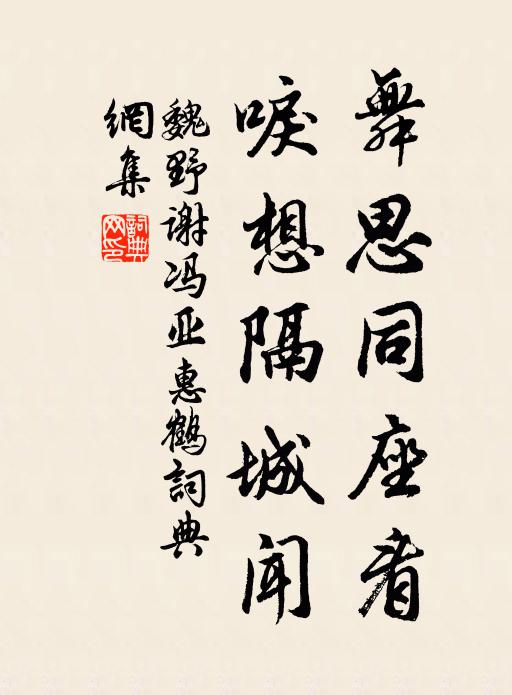 舞思同座看
唳想隔城闻
魏野谢冯亚惠鹤詞典
網集
詞典
网印